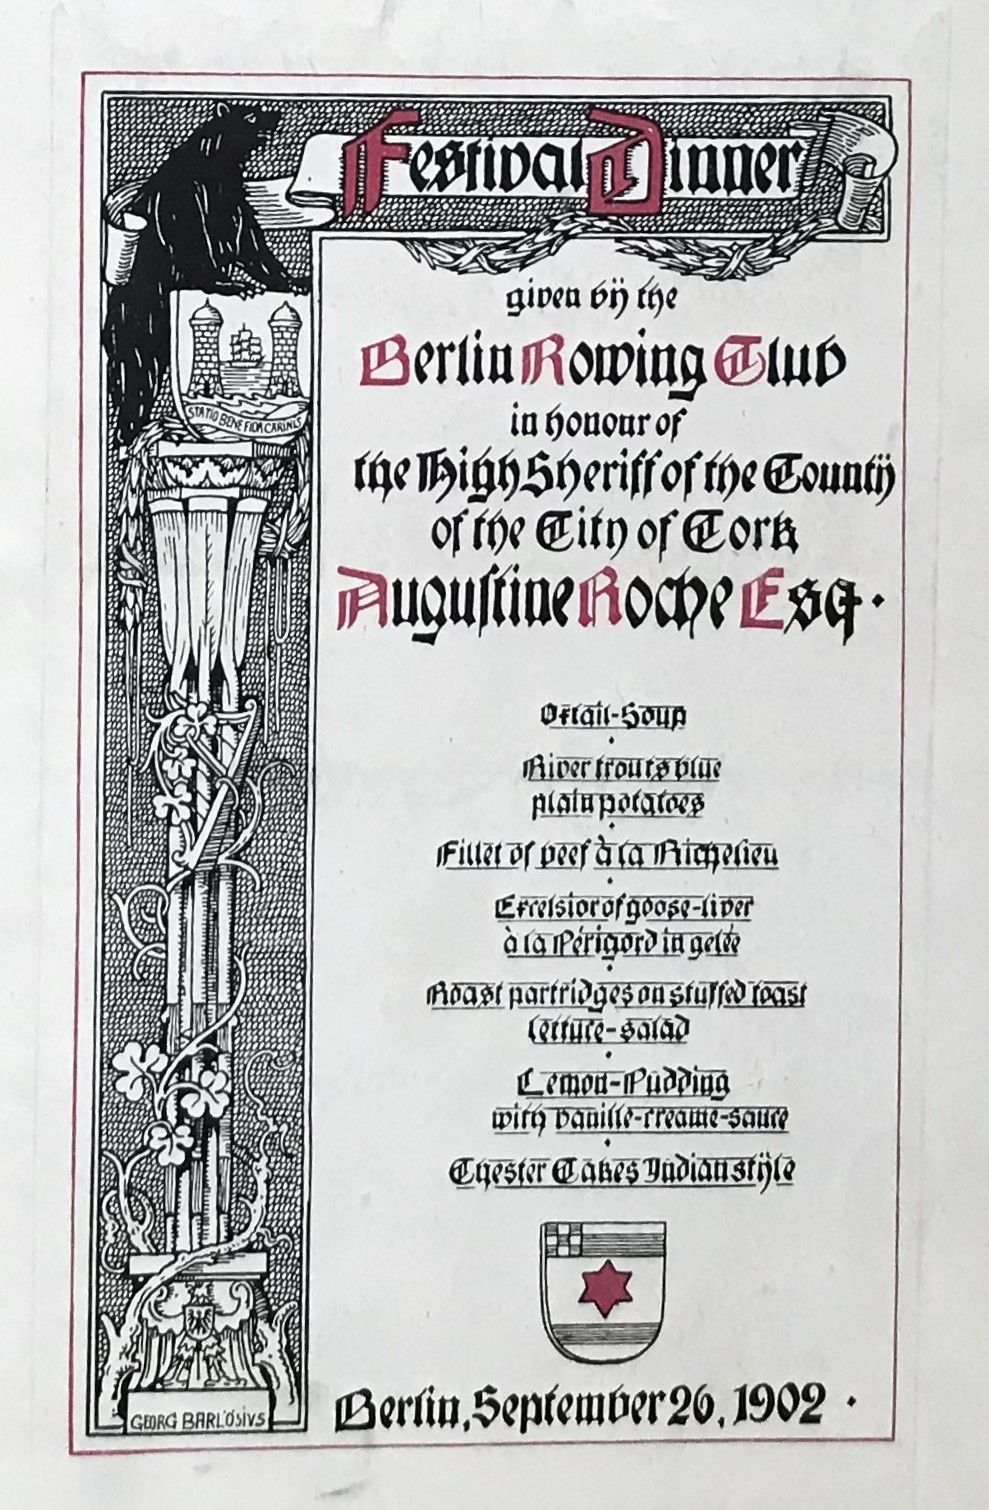 Festival Dinner
given by the
Berlin Rowing Club
in honour of
the High Sheriff of the County
of the City of Cork
Augustine Roche Esq.
Oxtail-Soup
River trouts blue
plain potatoes
Fillet of beef à la Richelieu
Excelsior of goose-liver
à la Périgord in gelée
Roast partridges on stuffed toast
lettuce-salad
Lemon-Pudding
with vanille-creame-sauce
Chester Cakes Indian style
Berlin, September 26, 1902.
STATIO BENE FIDA CARINIS
GEORG BARLÖSIVS